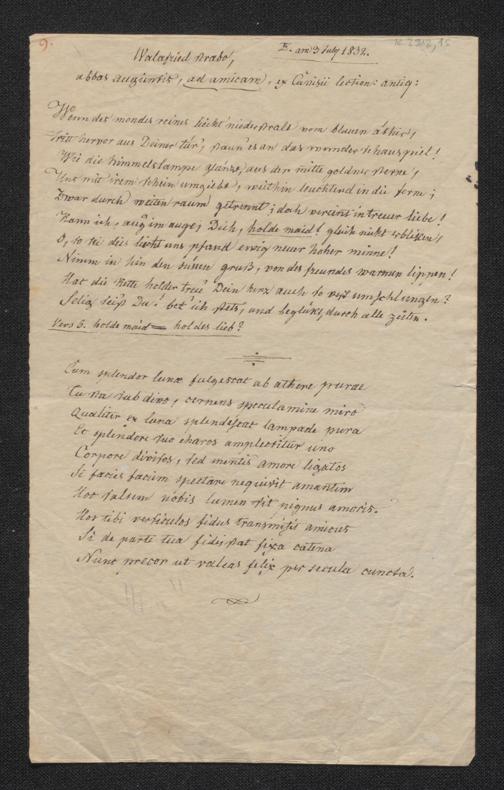 9.
Walafried Strabo, E. am 3 July 1832.
abbas augiensis, ad amicam, ex Canisii lection: antiq:
Wenn des mondes reines licht niederstralt vom blauen äther,
Tritt hervor aus Deiner tür, staun' es an das wunder schauspiel!
Wie die himmelslampe glänzt, aus der mitte goldner sterne,
Und mit irem schein umgiebt, weithin leuchtend in die ferne;
Zwar durch weiten raum getrennt; doch vereint in treuer liebe!
Kann ich, aug' im auge, Dich, holde maid! gleich nicht erblikken,
O, so sei dies licht uns pfand ewig neuer hoher minne!
Nimm in hin den süssen gruß, von des freundes warmen lippen!
Hat die kette holder treu' Dein herz auch so vest umschlungen?
Selig seist Du! bet' ich stets, und beglükt, durch alle zeiten.
Vers 6. holde maid = holdes lieb?
Cum splendor lunæ fulgescat ab æthere purae
Tu sta sub divo, cernens speculamine miro
Qualiter ex luna splendescat lampade pura
Et splendore suo charos amplectitur uno
Corpore divisos, sed mentis amore ligatos
Si facies faciem spectare nequivit amantem
Hoc saltem nobis lumen sit pignus amoris.
Hos tibi versiculos fidus transmisit amicus
Si de parte tua fidei stat fixa catena
Nunc precor ut valeas felix per secula cuncta.